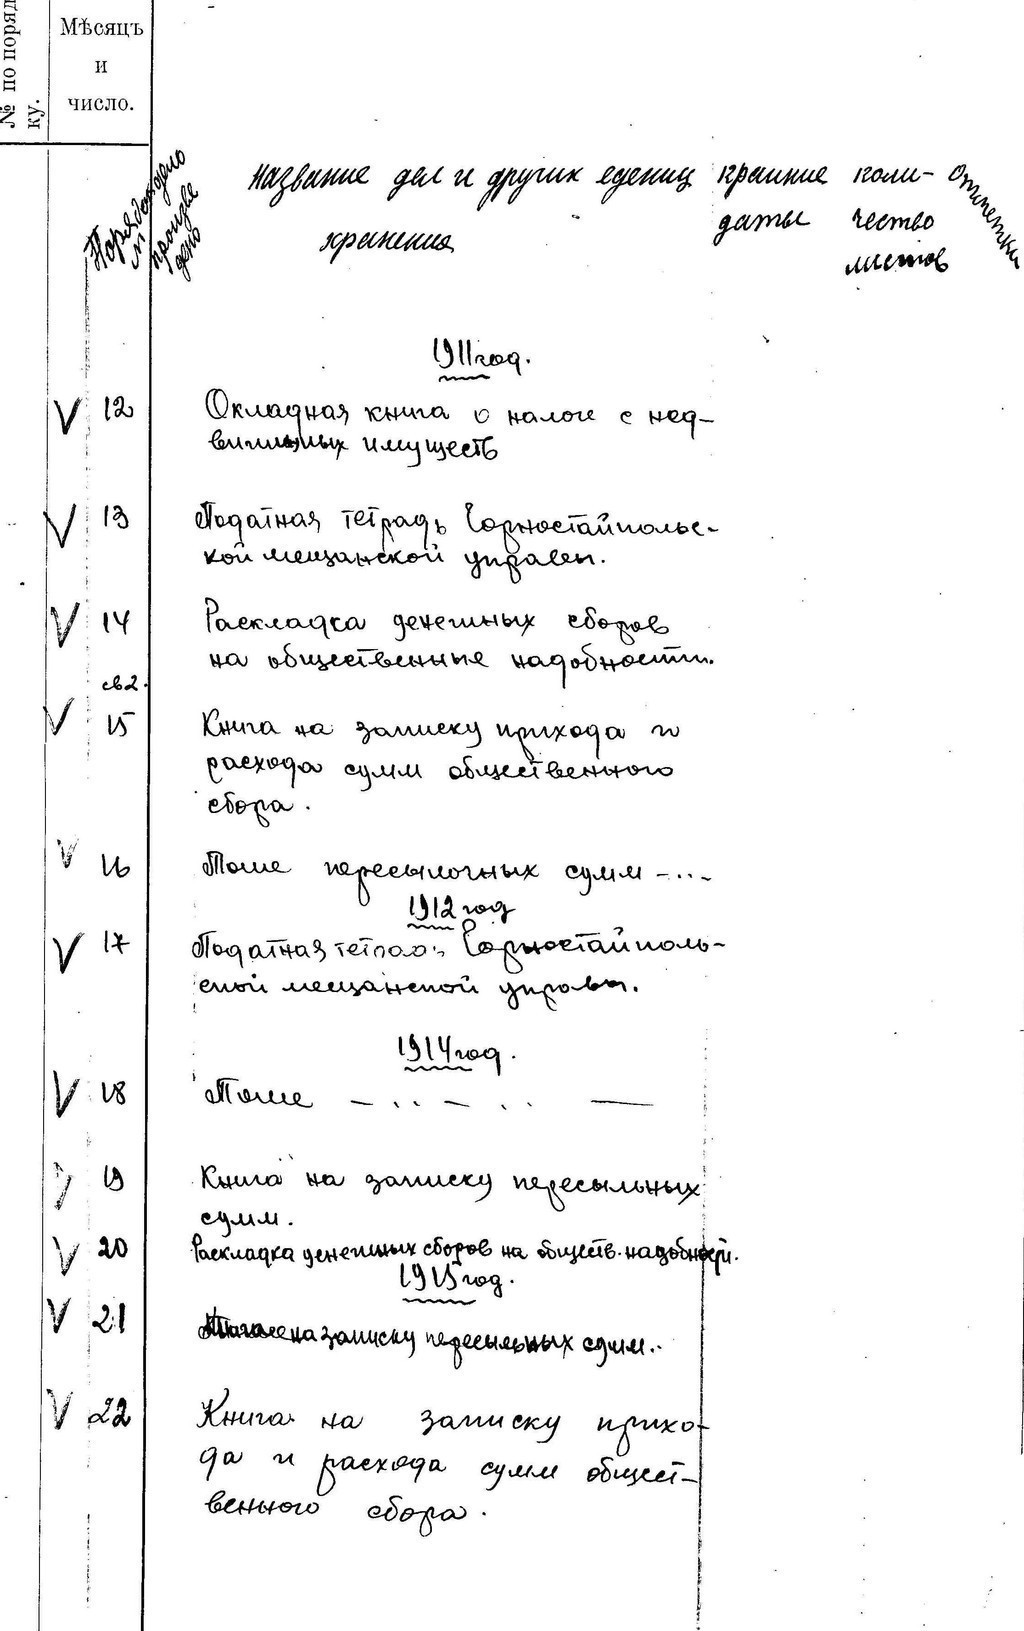 № по поряд
ку.
Мѣсяцъ
и
число.
Порядков
м
дело
произве
дено
название дел и других едениц
хранения
крайние
даты
коли-
чество
листов
отметки
1911 год.
V 12 Окладная книга о налоге с нед-
вижимых имуществ
V 13 Податная тетрадь Горностайпольс-
кой мещанской управы.
V 14 Раскладка денежных сборов
на общественные надобности.
св2.
V 15 Книга на записку прихода и
расхода сумм общественного
сбора.
V 16 Тоже пересылочных сумм -..-
1912 год
V 17 Податная тетрадь Горностайполь-
ской мещанской управы.
1914 год.
V 18 Тоже - .. - .. —
V 19 Книга на записку пересыльных
сумм.
V 20 Раскладка денежных сборов на обществ. надобности.
1915 год.
V 21 на записку пересыльных сумм..
V 22 Книга на записку прихо-
да и расхода сумм общест-
венного сбора.